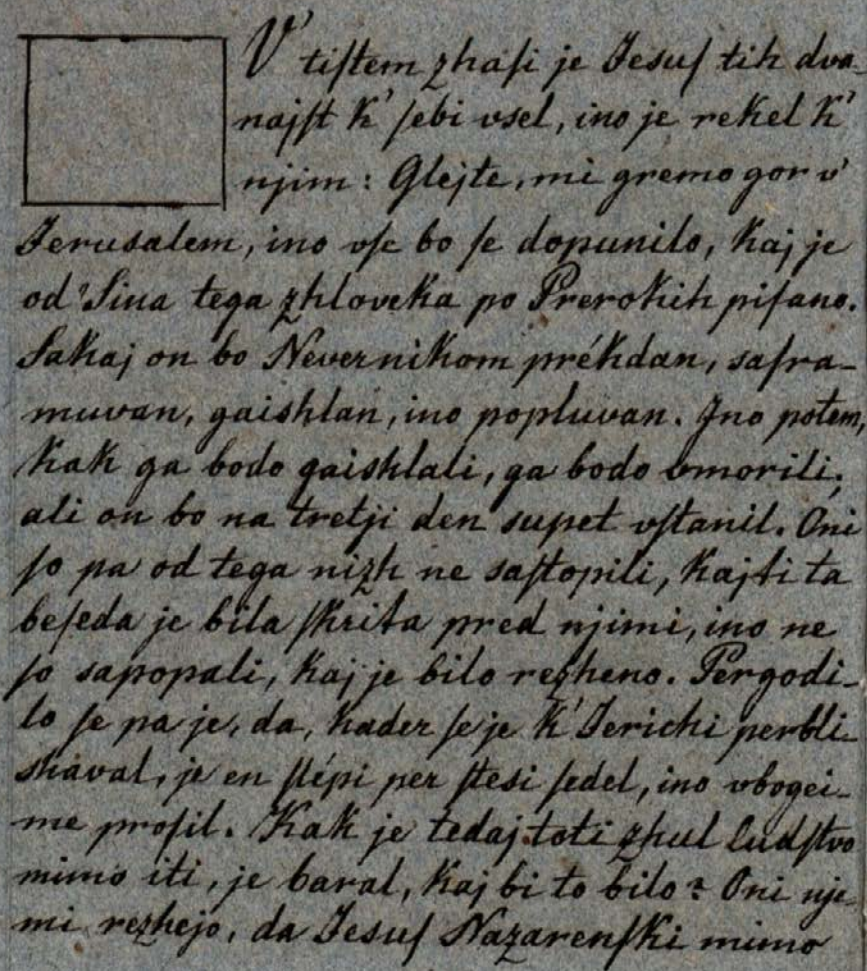 V' tiſtem zhaſi je Jesuſ tih dva-
najſt k' ſebi vsel, ino je rekel k'
njim: Glejte, mi gremo gor v'
Jerusalem, ino vſe bo ſe dopunilo, kaj je
od Sina tega zhloveka po Prerokih piſano.
Sakaj on bo Nevernikom prékdan, saſra-
muvan, gaishlan, ino popluvan. Ino potem,
kak ga bodo gaishlali, ga bodo vmorili;
ali on bo na tretji den supet vſtanil. Oni
ſo pa od tega nizh ne saſtopili, kajti ta
beſeda je bila ſkrita pred njimi, ino ne
ſo sapopali, kaj je bilo rezheno. Pergodi-
lo ſe pa je, da, kader ſe je k' Jerichi perbli-
shaval, je en ſlépi per ſtesi ſedel, ino vbogei-
me proſil. Kak je tedaj toti zhul ludſtvo
mimo iti, je baral, kaj bi to bilo? Oni nje-
mi rezhejo, da Jesuſ Nazarenſki mimo